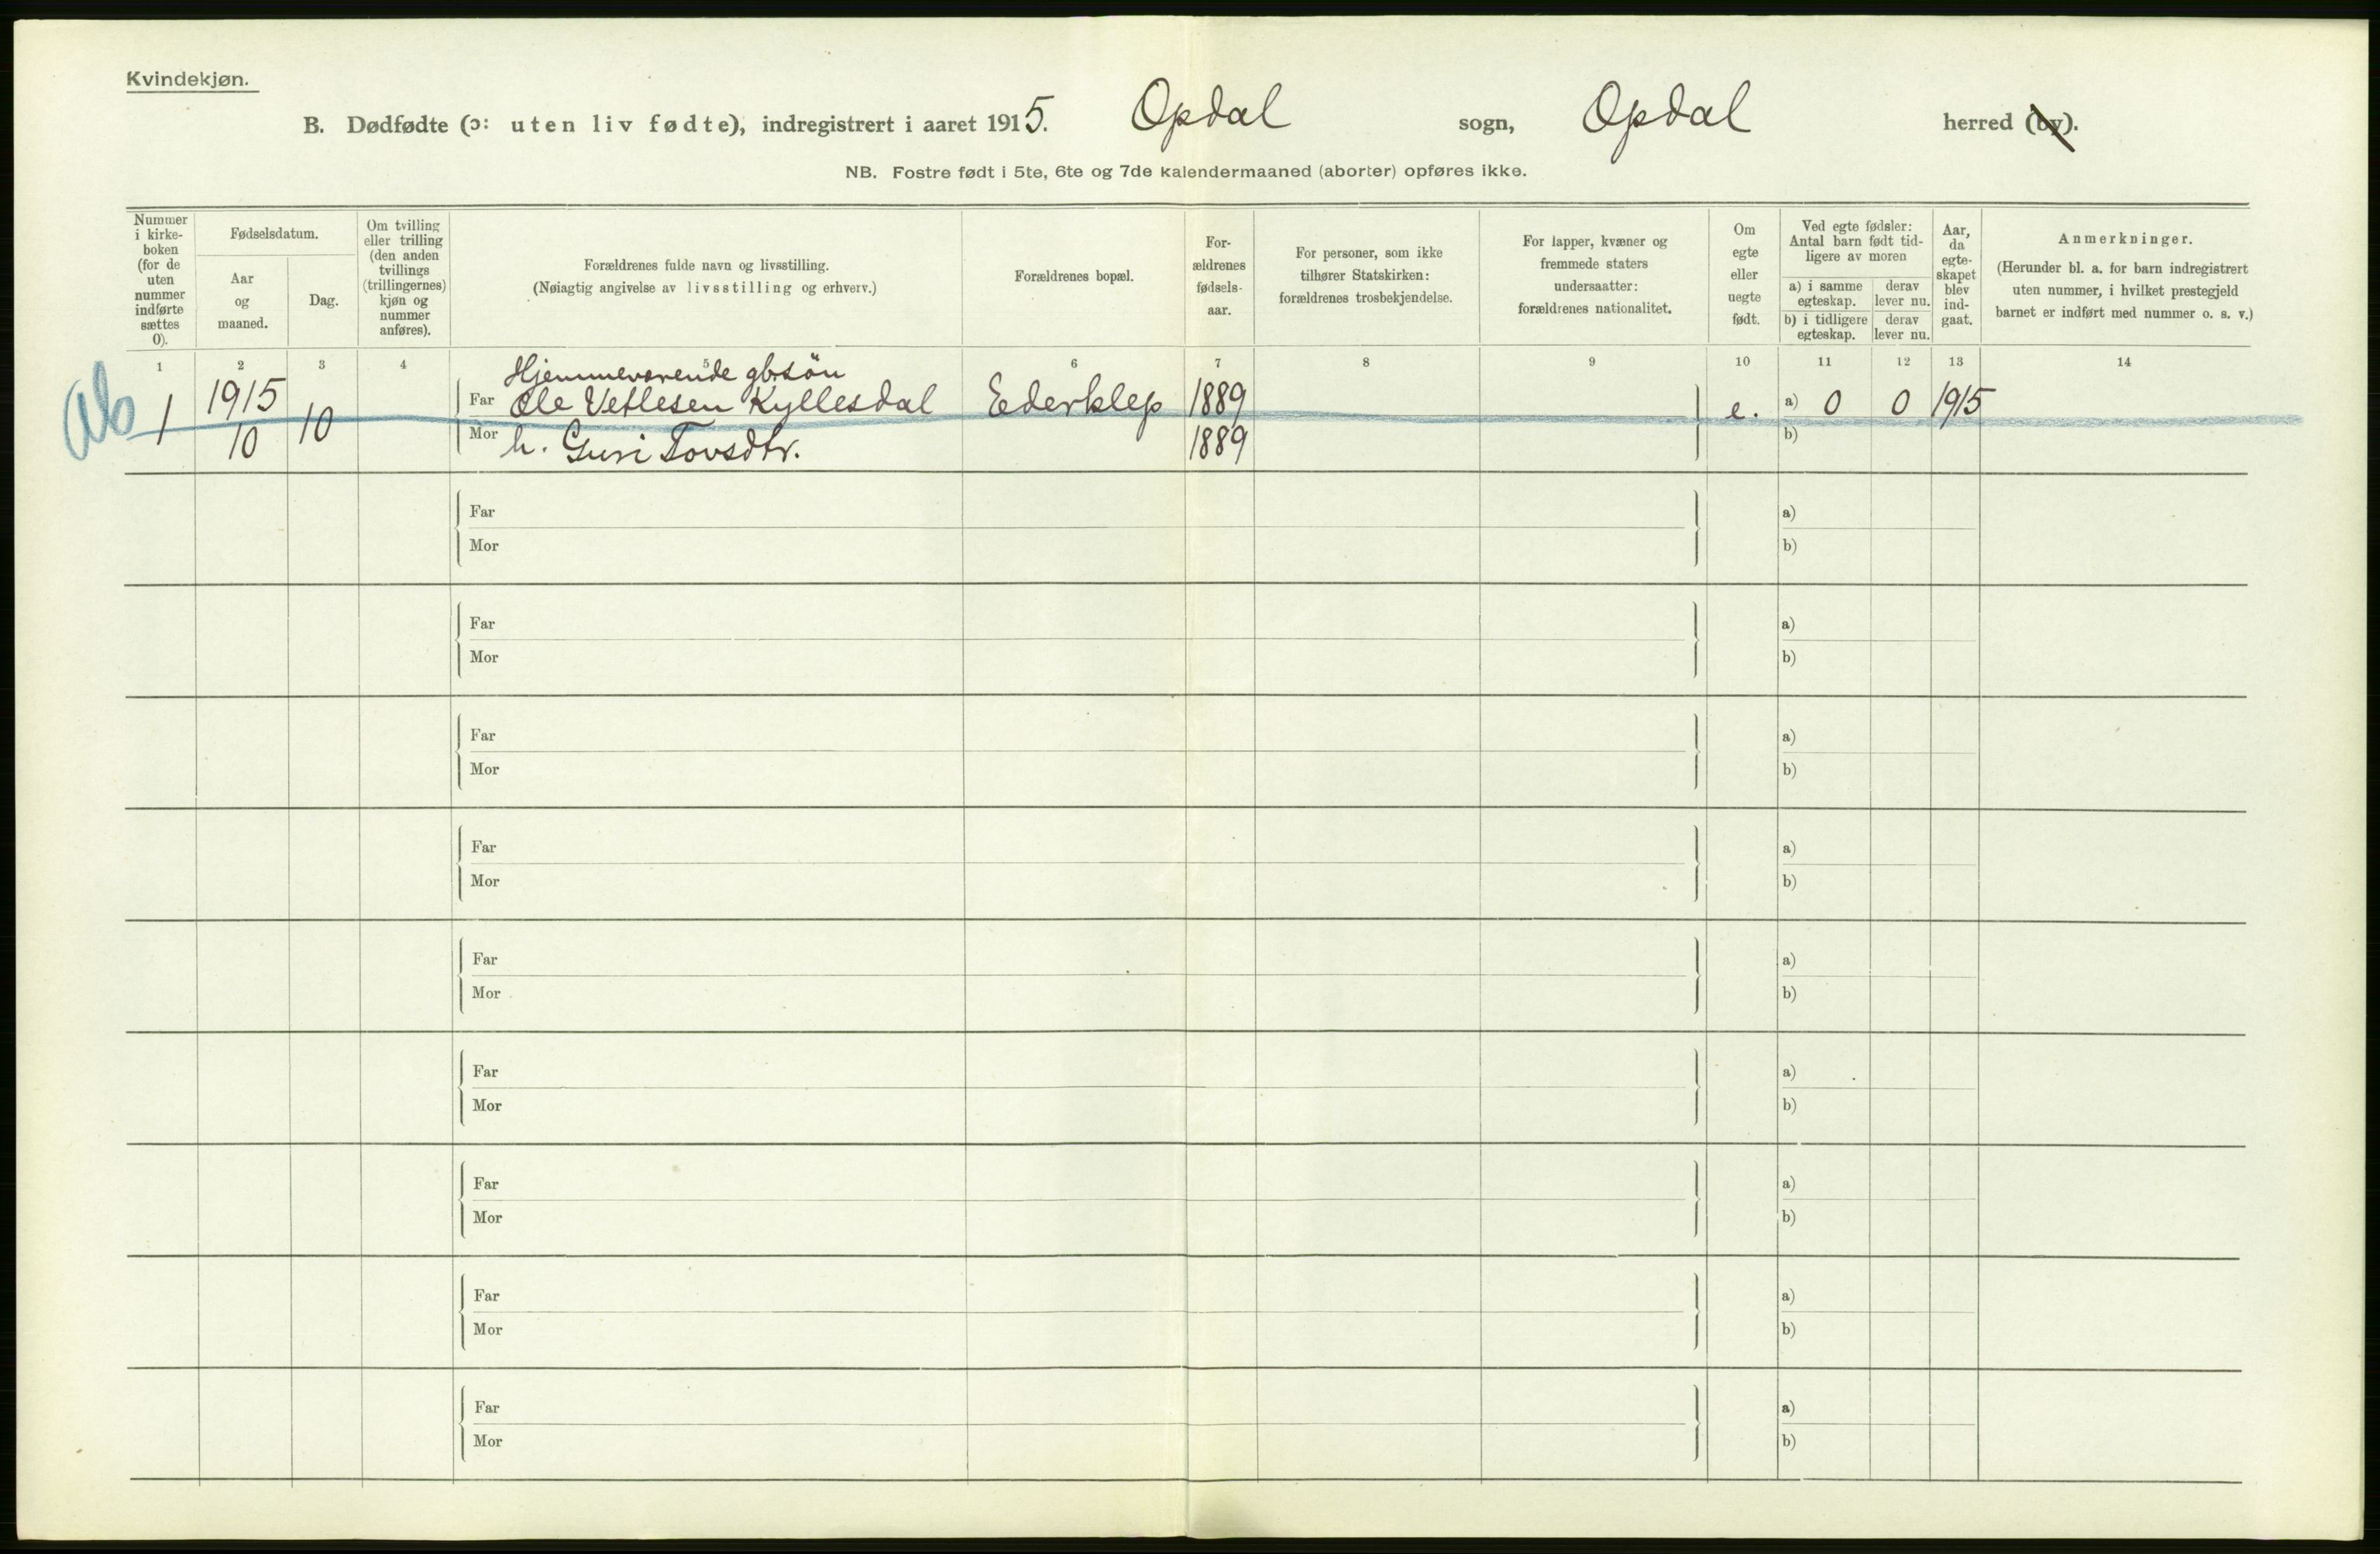 Kvindekjøn.
B. Dødfødte (ɔ: uten liv fødte), indregistrert i aaret 1915. Opdal sogn, Opdal herred (by).
NB. Fostre født i 5te, 6te og 7de kalendermaaned (aborter) opføres ikke.
Nummer
i kirke-
boken
(for de
uten
nummer
indførte
sættes
0).
Fødselsdatum.
Aar
og
maaned.
Dag.
Om tvilling
eller trilling
(den anden
tvillings
(trillingernes)
kjøn og
nummer
anføres).
Forældrenes fulde navn og livsstilling.
(Nøiagtig angivelse av livsstilling og erhverv.)
Forældrenes bopæl.
For-
ældrenes
fødsels-
aar.
For personer, som ikke
tilhører Statskirken:
forældrenes trosbekjendelse.
For lapper, kvæner og
fremmede staters
undersaatter:
forældrenes nationalitet.
Om
egte
eller
uegte
født.
Ved egte fødsler:
Antal barn født tid-
ligere av moren
a) i samme
egteskap.
derav
lever nu.
b) i tidligere
egteskap.
derav
lever nu.
Aar,
da
egte-
skapet
blev
ind-
gaat.
Anmerkninger.
(Herunder bl. a. for barn indregistrert
uten nummer, i hvilket prestegjeld
barnet er indført med nummer o. s. v.)
1 2 3 4 5 6 7 8 9 10 11 12 13 14
Hjemmeværende gbrsön
ab 1 1915 10 Far Ole Vetlesen Kyllesdal Ederklep 1889 e. a) 0 0 1915
10 Mor h. Guri Tovsdtr. 1889 b)
Far a)
Mor b)
Far a)
Mor b)
Far a)
Mor b)
Far a)
Mor b)
Far a)
Mor b)
Far a)
Mor b)
Far a)
Mor b)
Far a)
Mor b)
Far a)
Mor b)